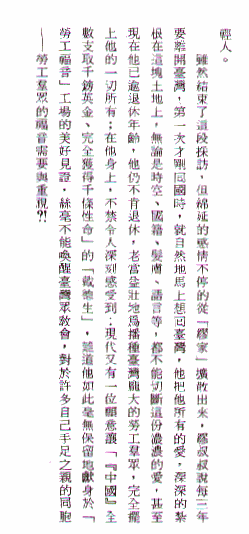 輕人。
雖然結束了這段採訪，但綿延的感情不停的從「繆家」擴散出來，繆叔叔說每三年
要離開臺灣，第一次才剛回國時，就自然地馬上想回臺灣，他把他所有的愛，深深的紮
根在這塊土地上，無論是時空、國籍、髮膚、語言等，都不能切斷這份濃濃的愛，甚至
現在他已逾退休年齡，他仍不肯退休，老當益壯地為播種臺灣龐大的勞工羣眾，完全擺
上他的一切所有；在他身上，不禁令人深刻感受到：現代又有一位願意讓「『中國』全
數支取千鎊英金、完全獲得千條性命」的「戴德生」，難道他如此毫無保留地獻身於「
勞工福音」工場的美好見證，絲毫不能喚醒臺灣眾教會，對於許多自己手足之親的同胞
——勞工羣眾的福音需要與重視？！